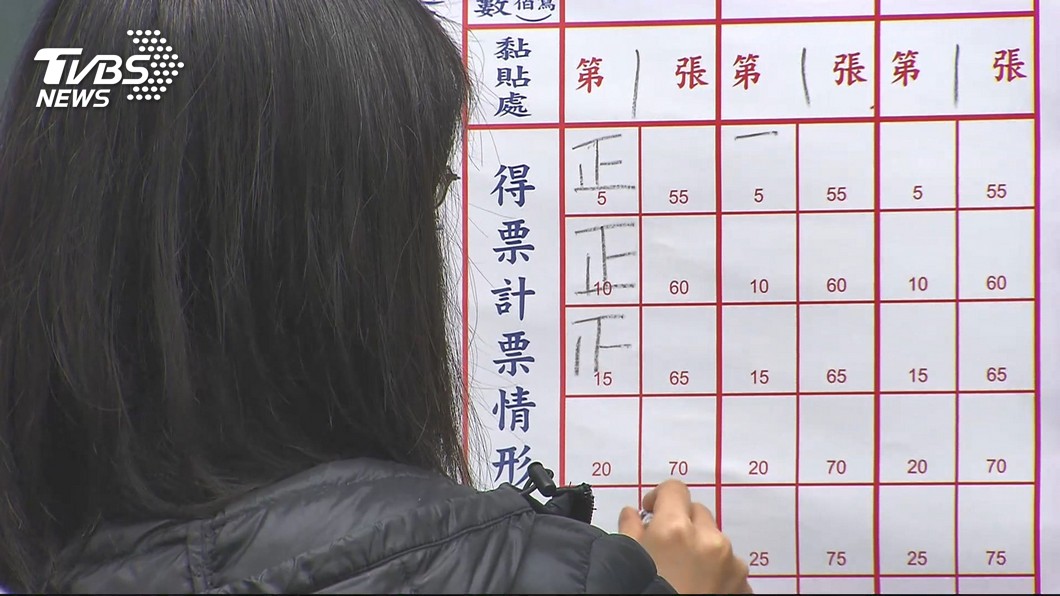 TVBS
NEWS
數
黏貼處
第 | 張 第 | 張 第 | 張
得票計票情形
正 5 55 一 5 55 5 55
正 10 60 10 60 10 60
正 15 65 15 65 15 65
20 70 20 70 20 70
25 75 25 75